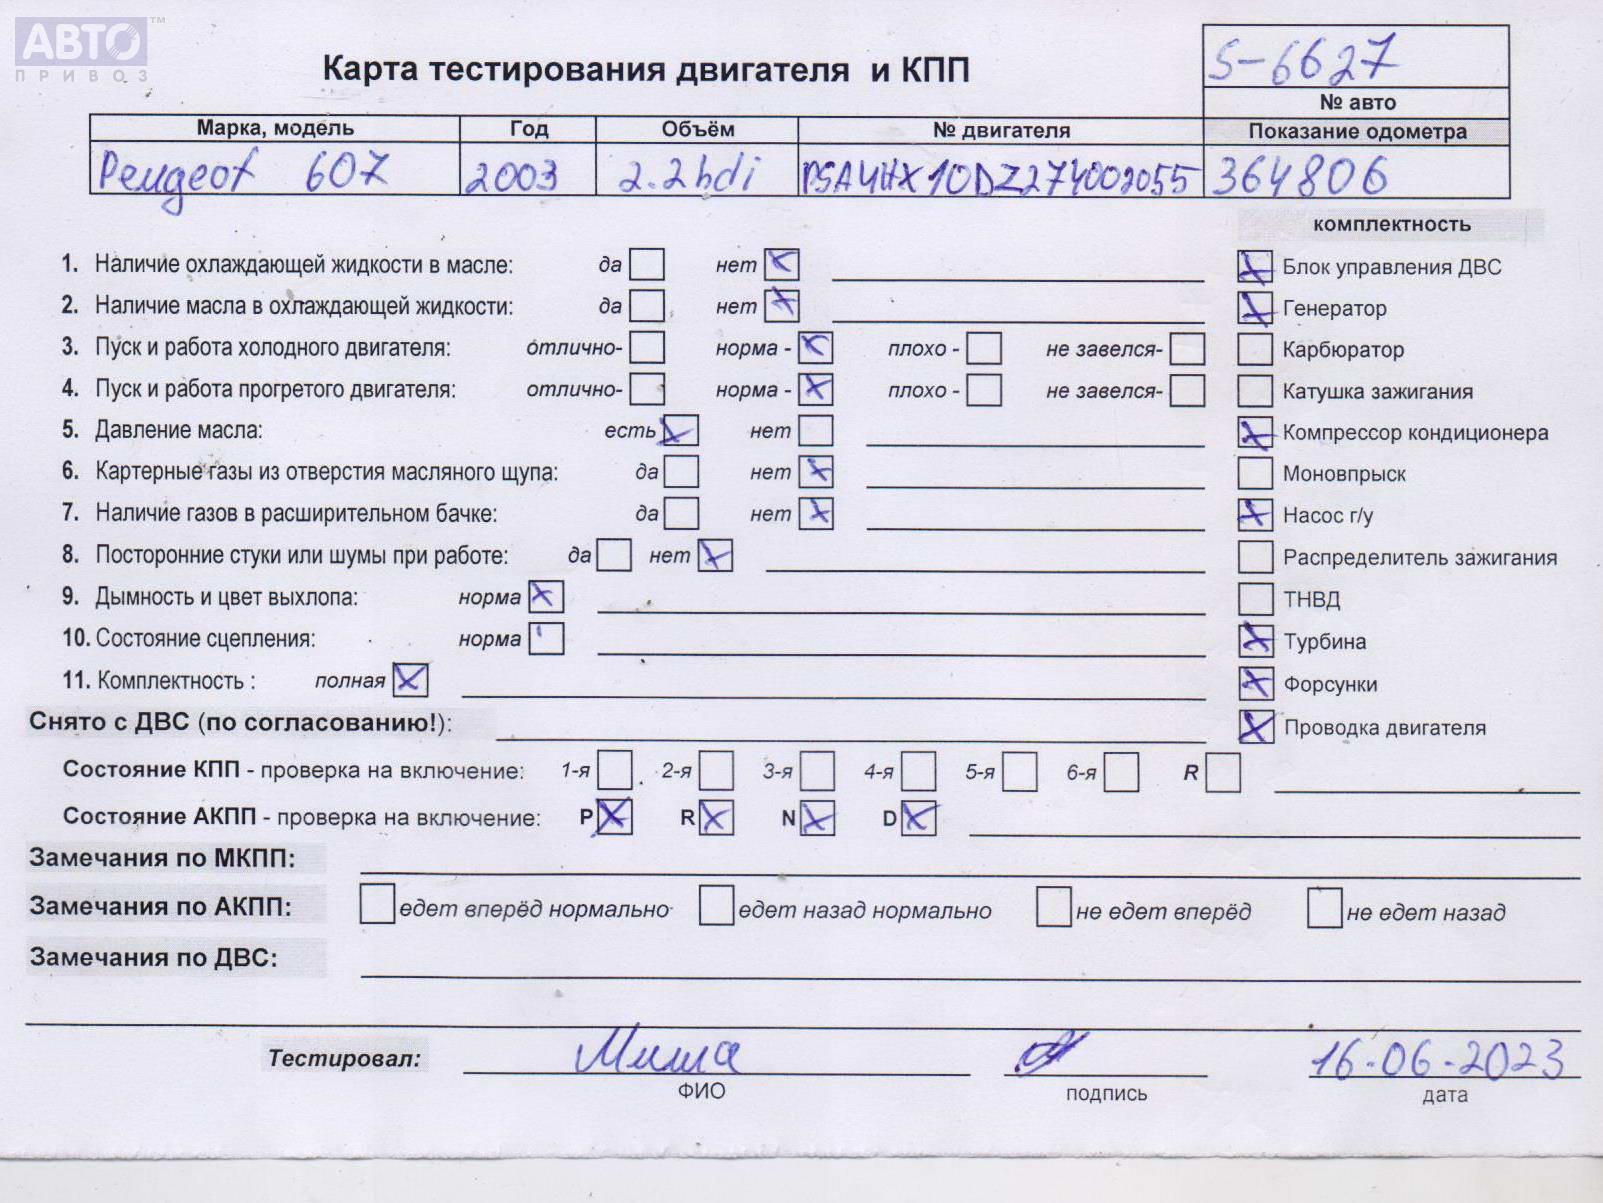 АВТО™
ПРИВОЗ
Карта тестирования двигателя и КПП
S-6627
№ авто
Марка, модель Год Объём № двигателя Показание одометра
Peugeot 607 2003 2.2hdi PSA4HX10DZ274002055 364806
комплектность
1. Наличие охлаждающей жидкости в масле: да нет Блок управления ДВС
2. Наличие масла в охлаждающей жидкости: да нет Генератор
3. Пуск и работа холодного двигателя: отлично- норма - плохо - не завелся- Карбюратор
4. Пуск и работа прогретого двигателя: отлично- норма - плохо - не завелся- Катушка зажигания
5. Давление масла: есть нет Компрессор кондиционера
6. Картерные газы из отверстия масляного щупа: да нет Моновпрыск
7. Наличие газов в расширительном бачке: да нет Насос г/у
8. Посторонние стуки или шумы при работе: да нет Распределитель зажигания
9. Дымность и цвет выхлопа: норма ТНВД
10. Состояние сцепления: норма Турбина
11. Комплектность : полная Форсунки
Снято с ДВС (по согласованию!): Проводка двигателя
Состояние КПП - проверка на включение: 1-я 2-я 3-я 4-я 5-я 6-я R
Состояние АКПП - проверка на включение: P R N D
Замечания по МКПП:
Замечания по АКПП: едет вперёд нормально едет назад нормально не едет вперёд не едет назад
Замечания по ДВС:
Тестировал: Миша 16-06-2023
ФИО подпись дата